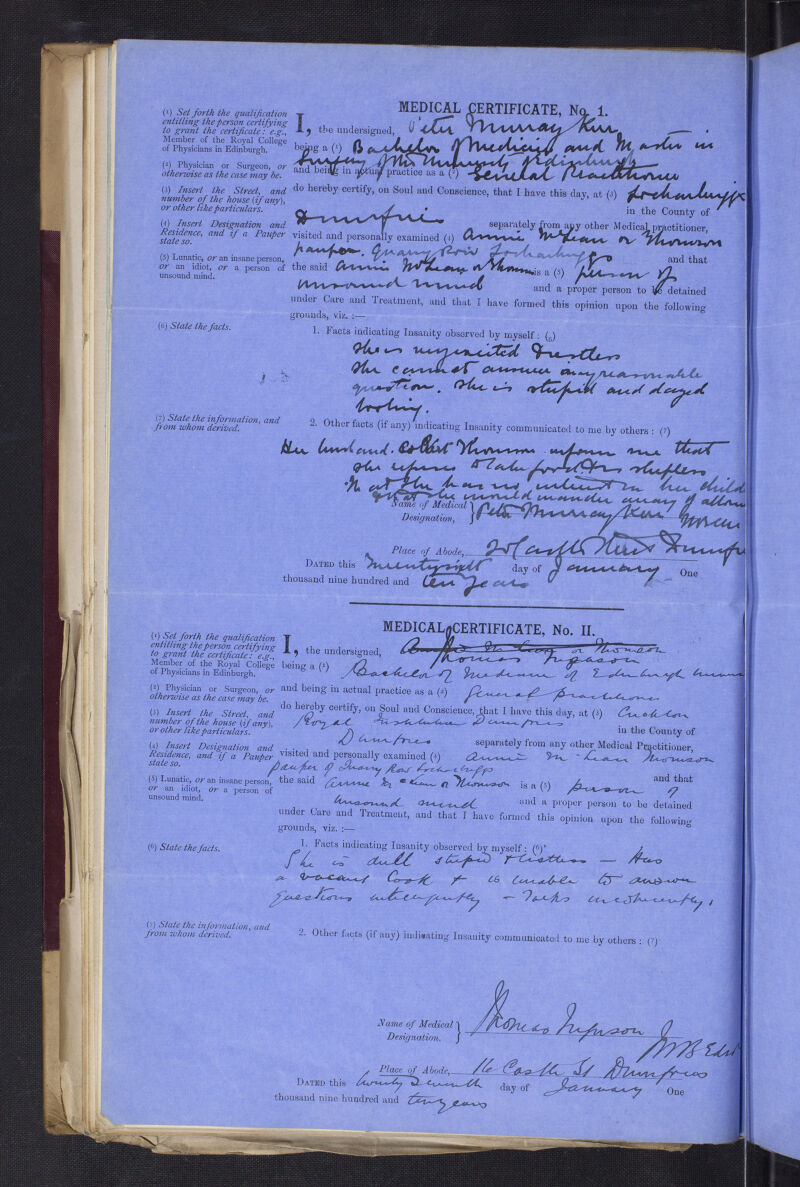 MEDICAL CERTIFICATE, No. 1.
(1) Set forth the qualification entitling the person certifying to grant the certificate: e.g., Member of the Royal College of Physicians in Edinburgh.
(2) Physician or Surgeon, or otherwise as the case may be.
(3) Insert the Street, and number of the house (if any), or other like particulars.
(4) Insert Designation and Residence, and if a Pauper state so.
(5) Lunatic, or an insane person, or an idiot, or a person of unsound mind.
I, the undersigned, Peter Murray Kerr
being a (1) Bachelor of Medicine and Master in
Surgery of the University of Edinburgh
and being in actual practice as a (2) General Practitioner
do hereby certify, on Soul and Conscience, that I have this day, at (3) Locharbriggs
in the County of
Dumfries separately from any other Medical Practitioner,
visited and personally examined (4) Annie McLean or Thomson
pauper. Quarry Row Locharbriggs and that
the said Annie McLean or Thomson is a (5) person of
unsound mind and a proper person to be detained
under Care and Treatment, and that I have formed this opinion upon the following
grounds, viz. :—
(6) State the facts.
1. Facts indicating Insanity observed by myself : (6)
She is very excited & restless
She cannot answer any reasonable
question. She is stupid and dazed
looking.
(7) State the information, and from whom derived.
2. Other facts (if any) indicating Insanity communicated to me by others : (7)
Her husband Robert Thomson informs me that
she refuses to take food. Is sleepless
That she has no interest in her child
& that she would wander away if allow
Name of Medical Designation, Peter Murray Kerr
Place of Abode, Castle Street Dumfr
DATED this Twentysixth day of January One
thousand nine hundred and ten years
MEDICAL CERTIFICATE, No. II.
(1) Set forth the qualification entitling the person certifying to grant the certificate: e.g., Member of the Royal College of Physicians in Edinburgh.
(2) Physician or Surgeon, or otherwise as the case may be.
(3) Insert the Street, and number of the house (if any), or other like particulars.
(4) Insert Designation and Residence, and if a Pauper state so.
(5) Lunatic, or an insane person, or an idiot, or a person of unsound mind.
I, the undersigned, Annie McLean or Thomson
Thomas
being a (1) Bachelor of Medicine of Edinburgh
and being in actual practice as a (2) General practitioner
do hereby certify, on Soul and Conscience, that I have this day, at (3) Crichton
Royal Institution Dumfries in the County of
Dumfries separately from any other Medical Practitioner,
visited and personally examined (4) Annie McLean Thomson
pauper of Quarry Row Locharbriggs and that
the said Annie McLean or Thomson is a (5) person of
unsound mind and a proper person to be detained
under Care and Treatment, and that I have formed this opinion upon the following
grounds, viz. :—
(6) State the facts.
1. Facts indicating Insanity observed by myself : (6)
She is dull stupid & listless — Has
a vacant look & is unable to answer
questions intelligently — Talks incoherently.
(7) State the information, and from whom derived.
2. Other facts (if any) indicating Insanity communicated to me by others : (7)
Name of Medical Designation. Thomas
MB Edin
Place of Abode, 16 Castle St Dumfries
DATED this twenty seventh day of January One
thousand nine hundred and ten years